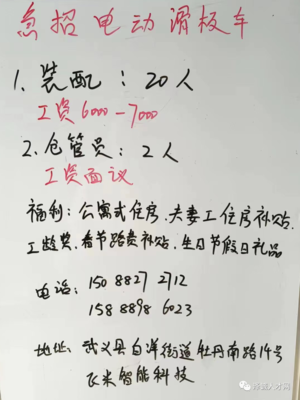 急招电动滑板车
1、装配：20人
工资6000-7000
2、仓管员：2人
工资面议
福利：公寓式住房、夫妻工住房补贴、
工龄奖、春节路费补贴、生日节假日礼品
电话：150 8827 2712
158 8898 6023
地址：武义县白洋街道牡丹南路14号
飞米智能科技